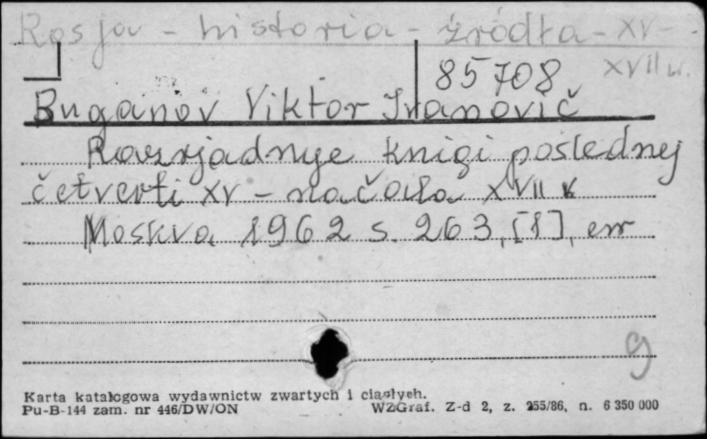 Rosja - historia - źródła - XV -
XVII w.
85708
Buganov Viktor Ivanovič
Razrjadnye knigi poslednej
četverti XV - načala XVII v
Moskva 1962 s. 263, [1], err
g
Karta katalogowa wydawnictw zwartych i ciągłych.
Pu-B-144 zam. nr 446/DW/ON WZGraf. Z-d 2, z. 255/86, n. 6 350 000